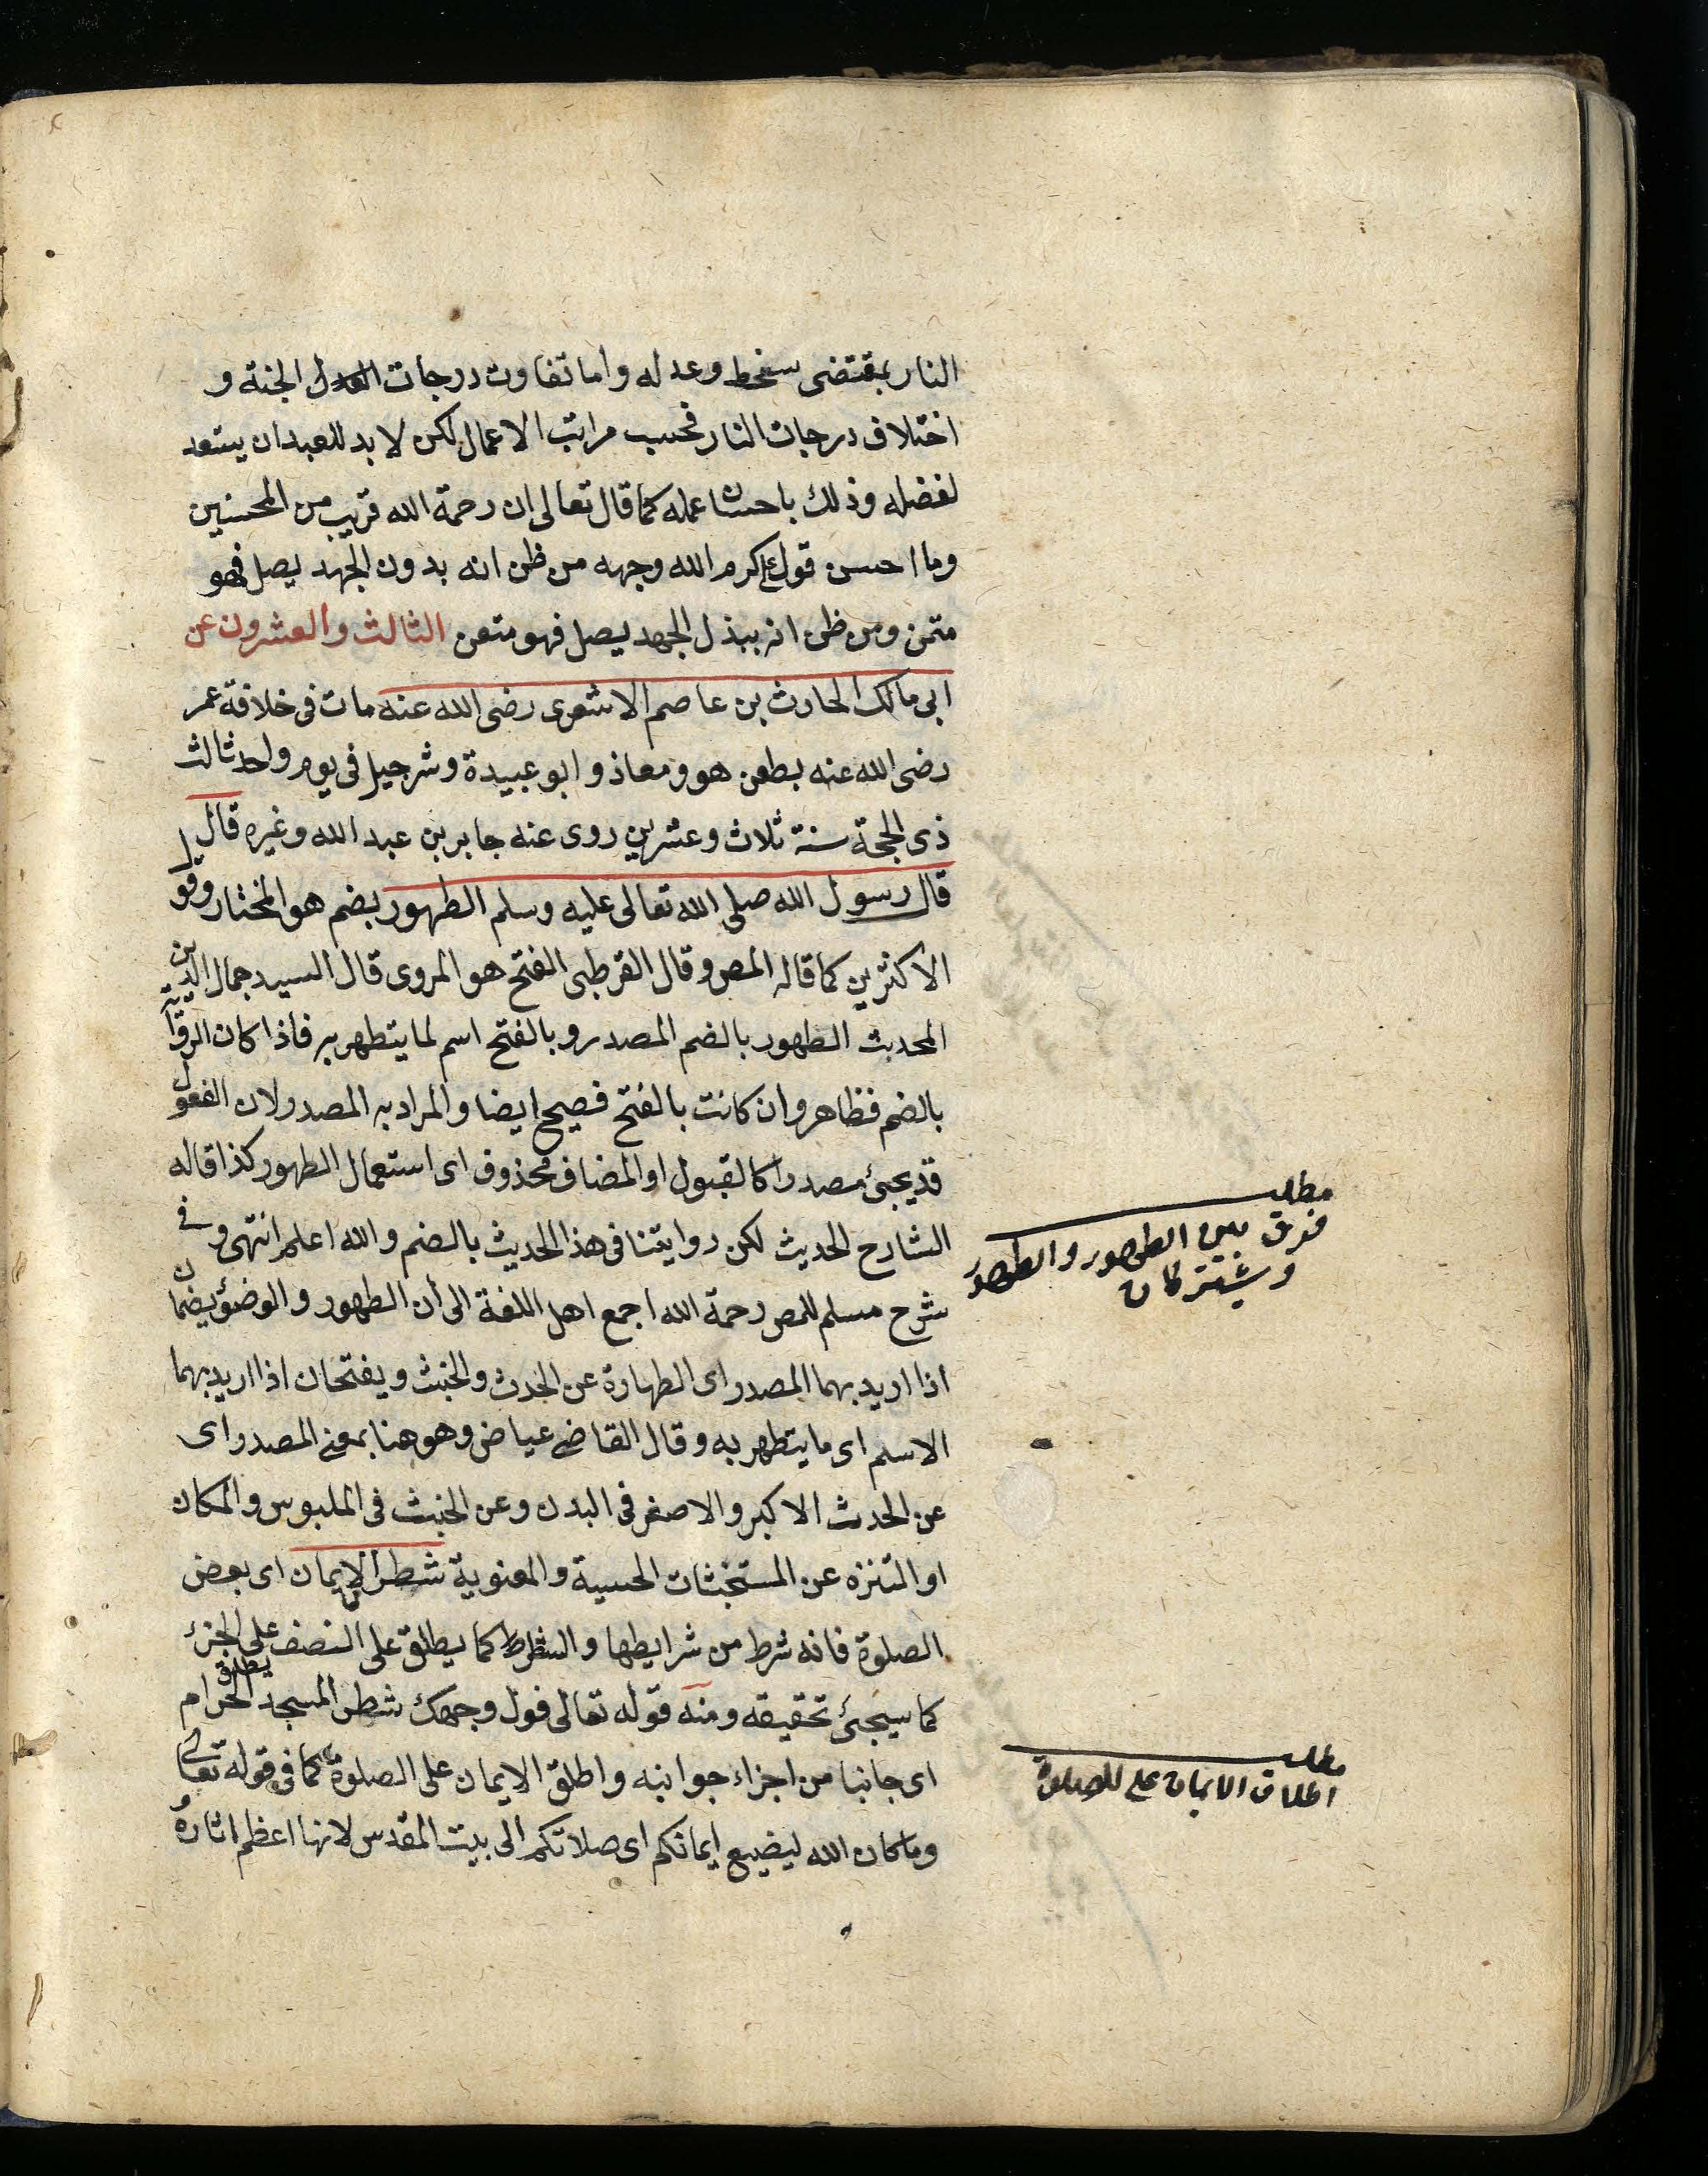 النار بمقتضى سخط وعدله واما تفاوت درجات الجنة و
اختلاف درجات النار فحسب مراتب الاعمال لكن لا بد للعبد ان يستعد
لفضله وذلك باحسان عمله كما قال تعالى ان رحمة الله قريب من المحسنين
وما احسن قول على كرم الله وجهه من ظن انه بدون الجهد يصل فهو
متمن ومن ظن انه ببذل الجهد يصل فهو متعن الثالث والعشرون عن
ابى مالك الحارث بن عاصم الاشعرى رضى الله عنه مات فى خلافة عمر
رضى الله عنه بطعن هو ومعاذ وابو عبيدة وشرجيل فى يوم واحد ثالث
ذى الحجة سنة ثلاث وعشرين روى عنه جابر بن عبد الله وغيره قال
قال رسول الله صلى الله تعالى عليه وسلم الطهور بضم هو المختار وقول
الاكثرين كما قاله المص وقال القرطبى الفتح هو المروى قال السيد جمال الدين
المحدث الطهور بالضم المصدر وبالفتح اسم لما يتطهر به فاذا كان الرواية
بالضم فظاهر وان كانت بالفتح فصيح ايضا والمراد به المصدر لان الفعول
قد يجئ مصدرا كالقبول او المضاف محذوف اى استعمال الطهور كذا قاله
الشارح الحديث لكن روايتنا فى هذا الحديث بالضم والله اعلم انتهى وفى
شرح مسلم للمص رحمة الله اجمع اهل اللغة الى أن الطهور والوضؤ يضمان
اذا اريد بهما المصدر اى الطهارة عن الحدث والخبث ويفتحان اذا اريد بهما
الاسم اى ما يتطهر به وقال القاضى عياض وهو هنا بمعنى المصدر اى
عن الحدث الاكبر والاصغر فى البدن وعن الخبث فى الملبوس والمكان
او التنزه عن المستخبثات الحسية والمعنوية شطر الايمان اى بعض
الصلوة فانه شرط من شرايطها والشطر كما يطلق على النصف يطلق على الجزء
كما سيجئ تحقيقه ومنه قوله تعالى فول وجهك شطر المسجد الحرام
اى جانبا من اجزاء جوانبه واطلق الايمان على الصلوة كما فى قوله تعالى
وما كان الله ليضيع ايمانكم اى صلاتكم الى بيت المقدس لانها اعظم اثاره
مطلب
فرق بين الطهور والطهور
ويشتركان
مطلب
اطلاق الايمان على للصلوة